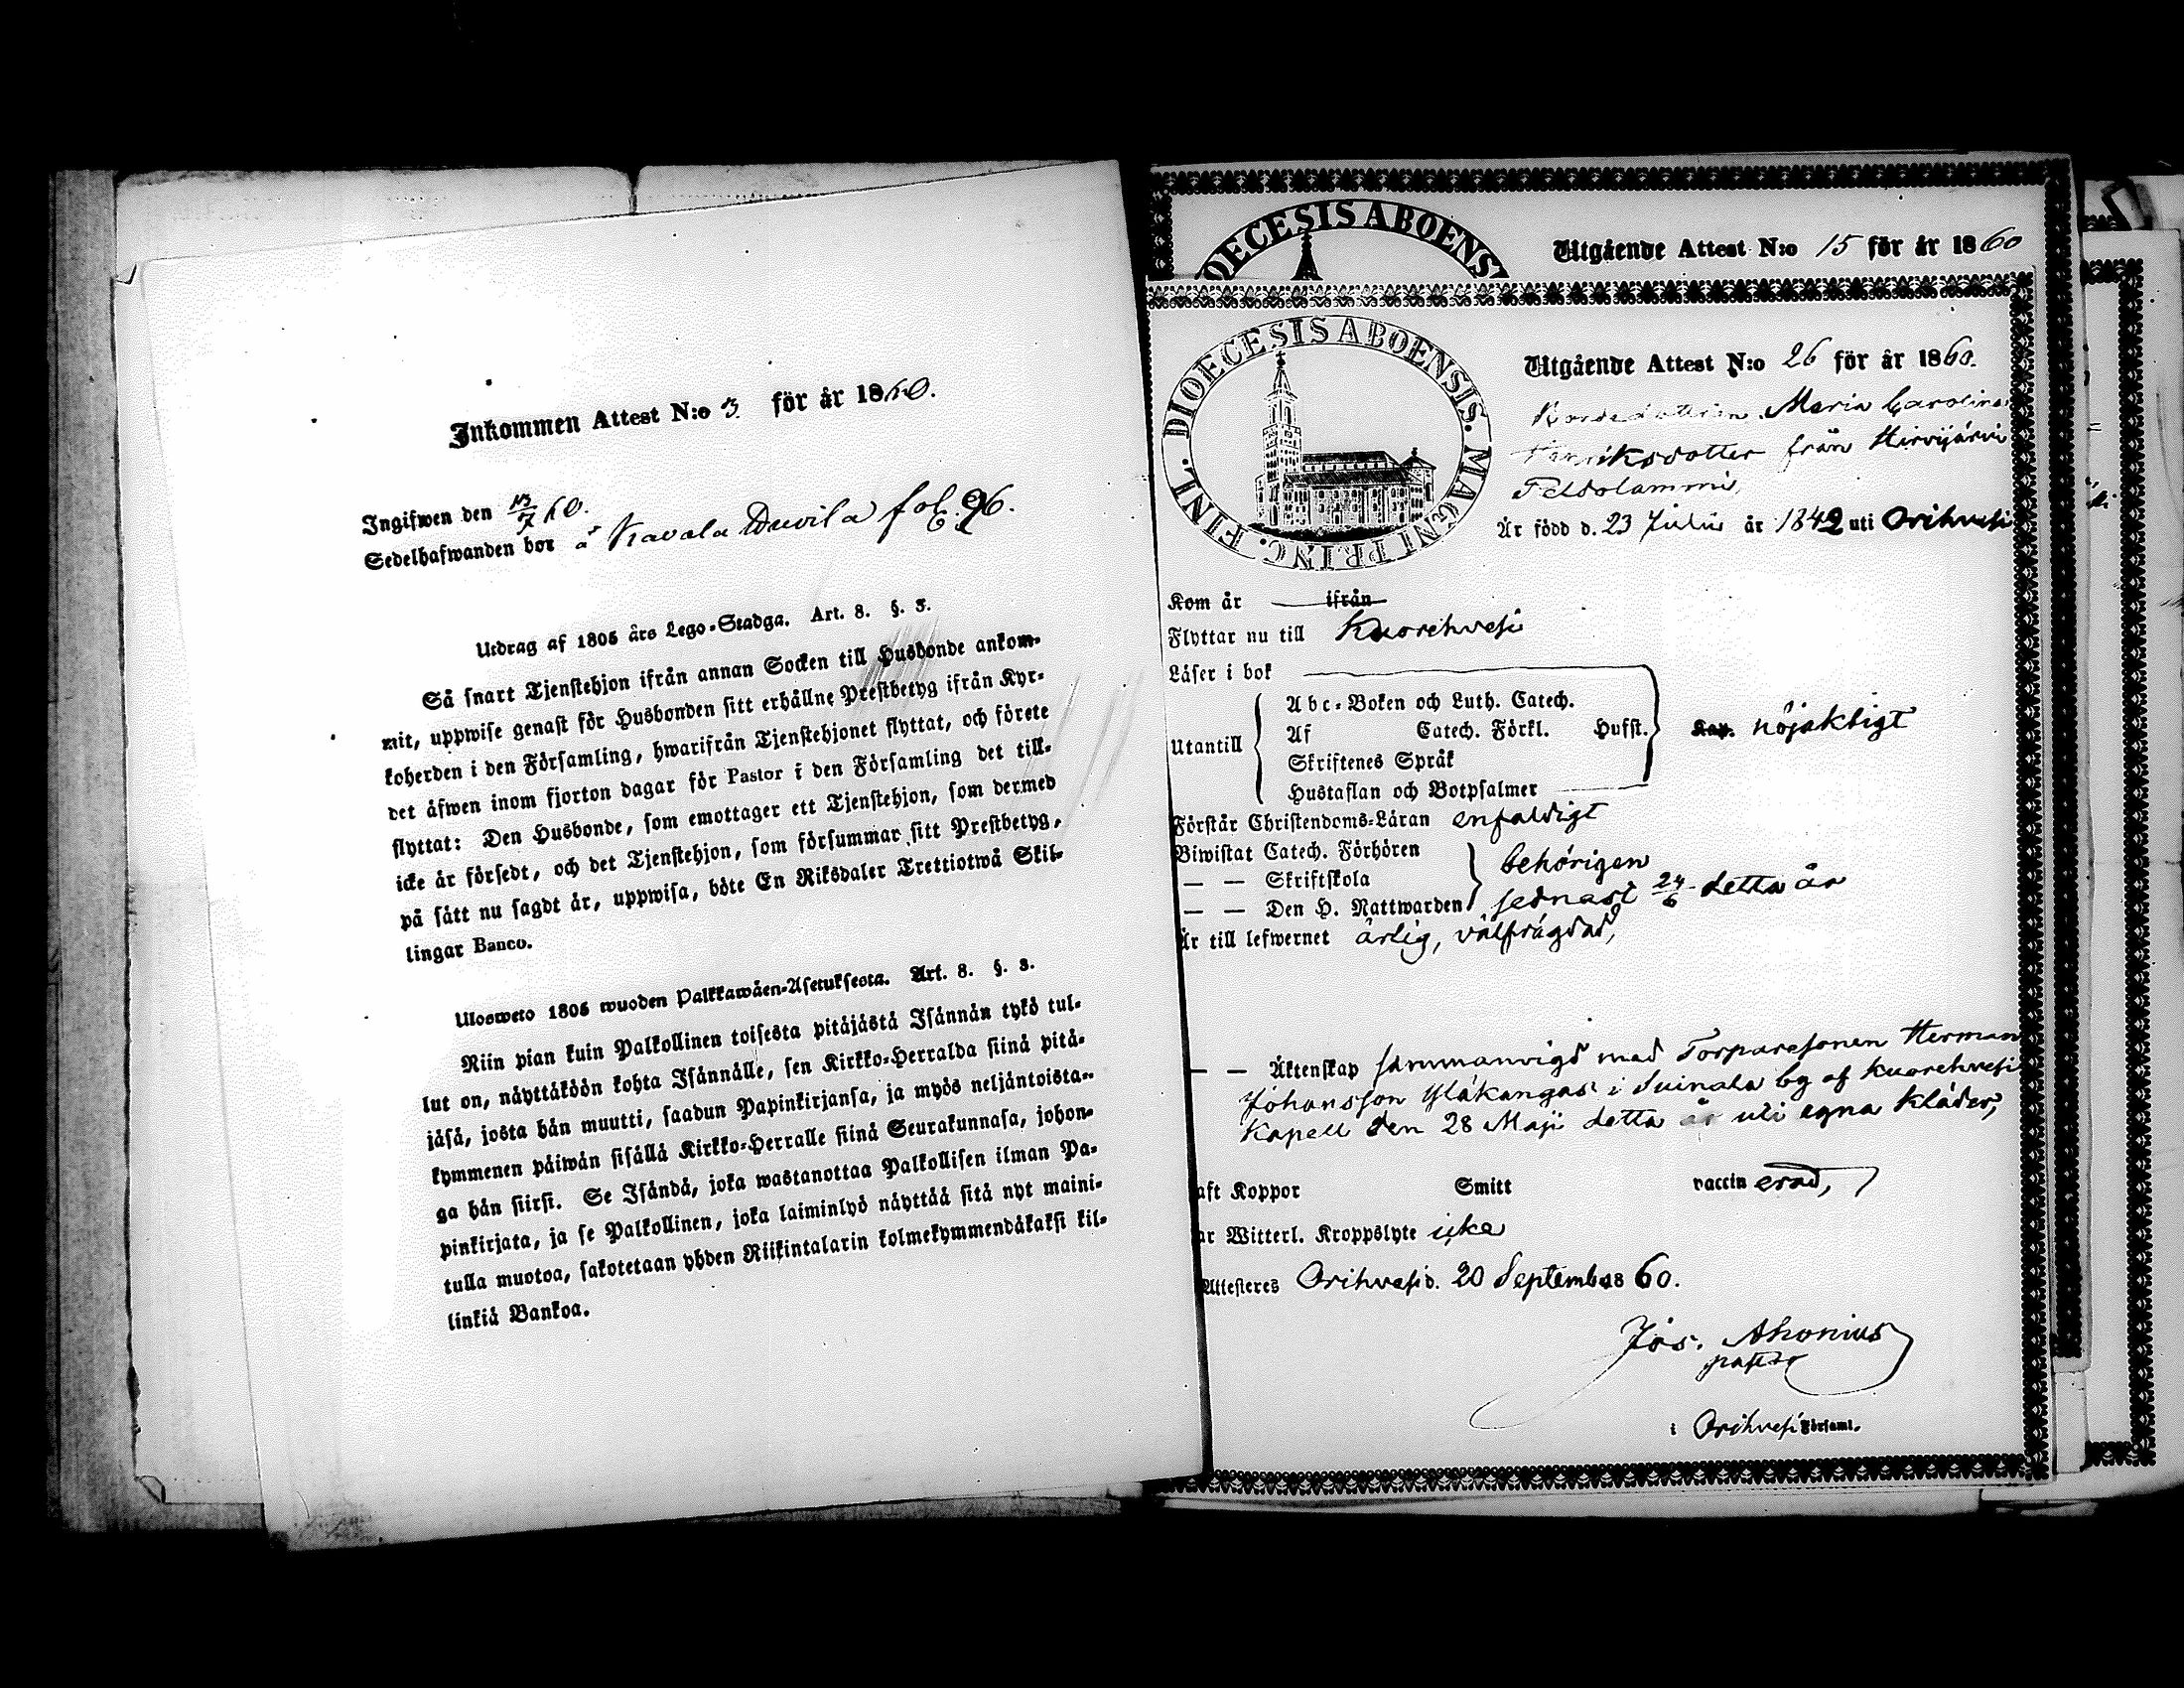 Inkommen Attest N:o 3 för år 1860.
Ingifwen den 13/7 60.
Sedelhafwanden bor å Kavala Duvila fol. 96.
Utdrag af 1805 års Lego-Stadga. Art. 8. §. 3.
Så snart Tjenstehjon ifrån annan Socken till Husbonde ankom-
mit, uppwise genast för Husbonden sitt erhållne Prestbetyg ifrån Kyr-
koherden i den Församling, hwarifrån Tjenstehjonet flyttat, och förete
det äfwen inom fjorton dagar för Pastor i den Församling det till-
flyttat: Den Husbonde, som emottager ett Tjenstehjon, som dermed
icke är försedt, och det Tjenstehjon, som försummar sitt Prestbetyg,
på sätt nu sagdt är, uppwisa, böte En Riksdaler Trettiotwå Skil-
lingar Banco.
Ulosweto 1805 wuoden Palkkawäen-Asetuksesta. Art. 8. §. 3.
Niin pian kuin Palkollinen toisesta pitäjästä Isännän tykö tul-
lut on, näyttäköön kohta Isännälle, sen Kirkko-Herralda siinä pitä-
jäsä, josta hän muutti, saadun Papinkirjansa, ja myös neljäntoista-
kymmenen päiwän sisällä Kirkko-Herralle siinä Seurakunnasa, johon-
ga hän siirsi. Se Isändä, joka wastanottaa Palkollisen ilman Pa-
pinkirjata, ja se Palkollinen, joka laiminlyö näyttää sitä nyt maini-
tulla muotoa, sakotetaan yhden Riikintalarin kolmekymmendäkaksi kil-
linkiä Bankoa.
DIOECESIS ABOENS
Utgående Attest N:o 15 för år 1860
DIOECESIS ABOENSIS. MAGNI PRINC. FINL.
Utgående Attest N:o 26 för år 1860.
Maria Carolina
Henriksdotter från Hirvijärvi
Peldolammi,
Är född d. 23 Julii år 1842 uti Orihvesi
Kom år ifrån
Flyttar nu till Kuorehvesi
Läser i bok
Abc-Boken och Luth. Catech.
Utantill Af Catech. Förkl. Hufst. Kap. nöjaktigt
Skriftenes Språk
Hustaflan och Botpsalmer
Förstår Christendoms-Läran enfaldigt
Biwistat Catech. Förhören behörigen
— — Skriftskola
— — Den H. Nattwarden sednast 24/6 detta år
Är till lefwernet ärlig, välfrägdad,
— — Äktenskap sammanvigd med Torparesonen Herman
Johansson Yläkangas i Suinala by af Kuorehvesi
Kapell den 28 Maji detta år uti egna kläder,
aft Koppor Smitt vaccinerad,
ar Witterl. Kroppslyte icke
Attesteres Orihvesi d. 20 September 1860.
Jos. Ahonius
pastor
i Orihvesi Församl.